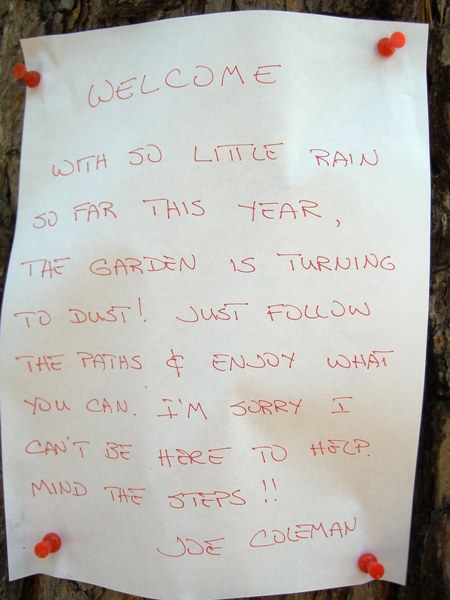 WELCOME
WITH SO LITTLE RAIN
SO FAR THIS YEAR,
THE GARDEN IS TURNING
TO DUST! JUST FOLLOW
THE PATHS & ENJOY WHAT
YOU CAN. I'M SORRY I
CAN'T BE HERE TO HELP.
MIND THE STEPS!!
JOE COLEMAN